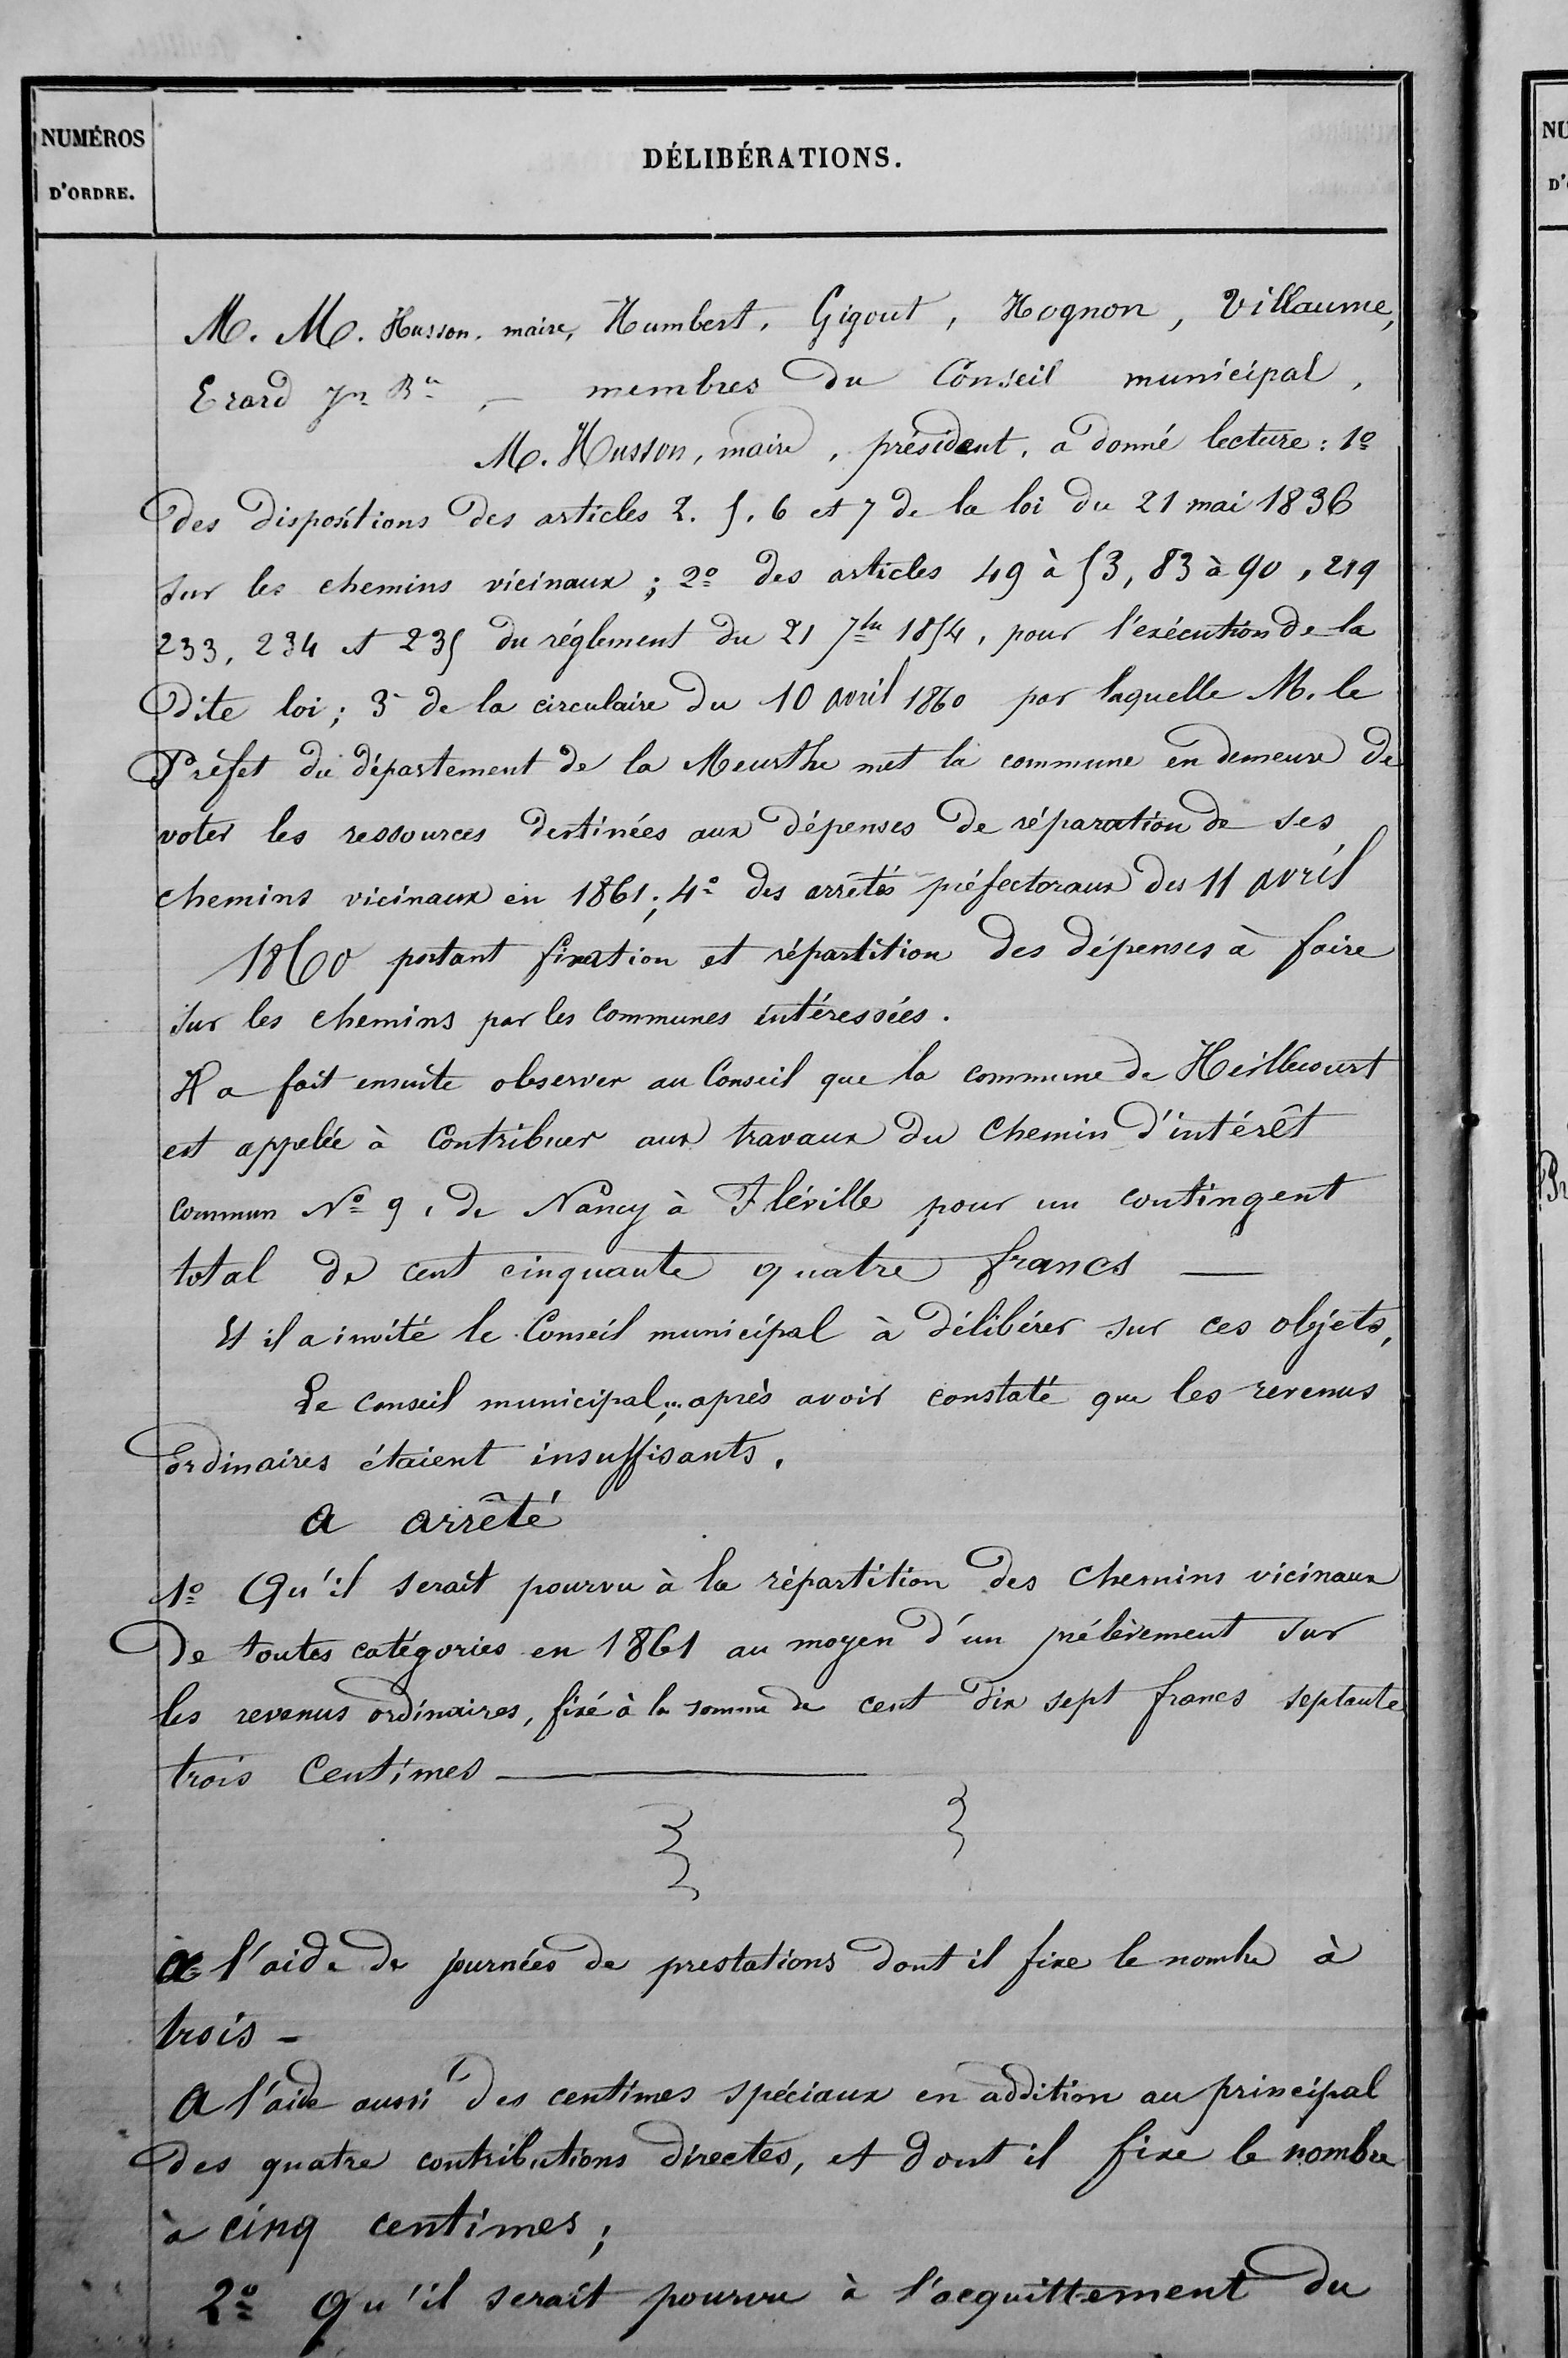 NUMÉROS
D'ORDRE.
DÉLIBÉRATIONS.
M. M. Husson, maire, Humbert, Gigout, Hognon, Villaume,
Erard Jn Bte, — membres du Conseil municipal,
M. Husson, maire, président, a donné lecture : 1º
des dispositions des articles 2. 5. 6 et 7 de la loi du 21 mai 1836
sur les chemins vicinaux ; 2º des articles 49 à 53, 83 à 90, 219
233, 234 et 235 du réglement du 21 7bre 1854, pour l'exécution de la
dite loi ; 3º de la circulaire du 10 avril 1860 par laquelle M. le
Préfet du département de la Meurthe met la commune en demeure de
voter les ressources destinées aux dépenses de réparation de ses
chemins vicinaux en 1861 ; 4º des arrêtés préfectoraux des 11 avril
1860 portant fixation et répartition des dépenses à faire
sur les chemins par les communes intéressées.
Il a fait ensuite observer au Conseil que la commune de Heillecourt
est appelée à contribuer aux travaux du chemin d'intérêt
commun Nº 9, de Nancy à Fléville pour un contingent
total de cent cinquante quatre francs —
Et il a invité le Conseil municipal à délibérer sur ces objets,
Le conseil municipal, après avoir constaté que les revenus
ordinaires étaient insuffisants,
a arrêté
1º Qu'il serait pourvu à la répartition des chemins vicinaux
de toutes catégories en 1861 au moyen d'un prélèvement sur
les revenus ordinaires, fixé à la somme de cent dix sept francs septante
trois centimes —
à l'aide de journées de prestations dont il fixe le nombre à
trois -
A l'aide aussi des centimes spéciaux en addition au principal
des quatre contributions directes, et dont il fixe le nombre
à cinq centimes ;
2º Qu'il serait pourvu à l'acquittement du